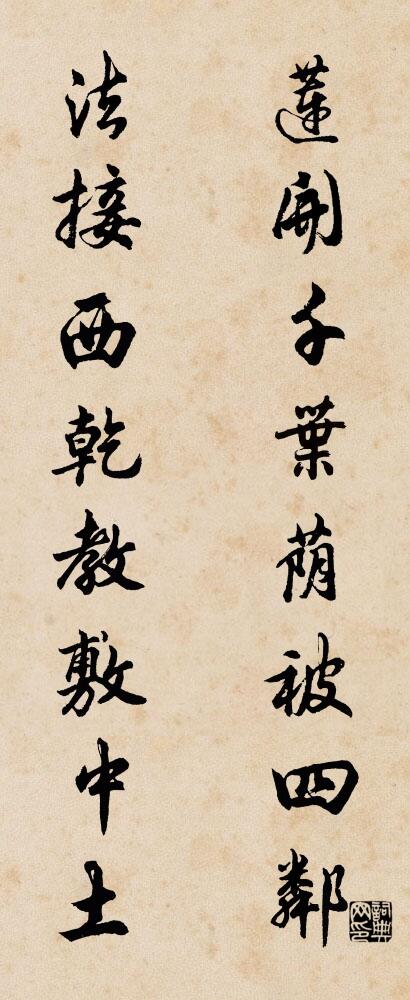 蓮開千葉蔭被四鄰
法接西乾教敷中土
詞典網印